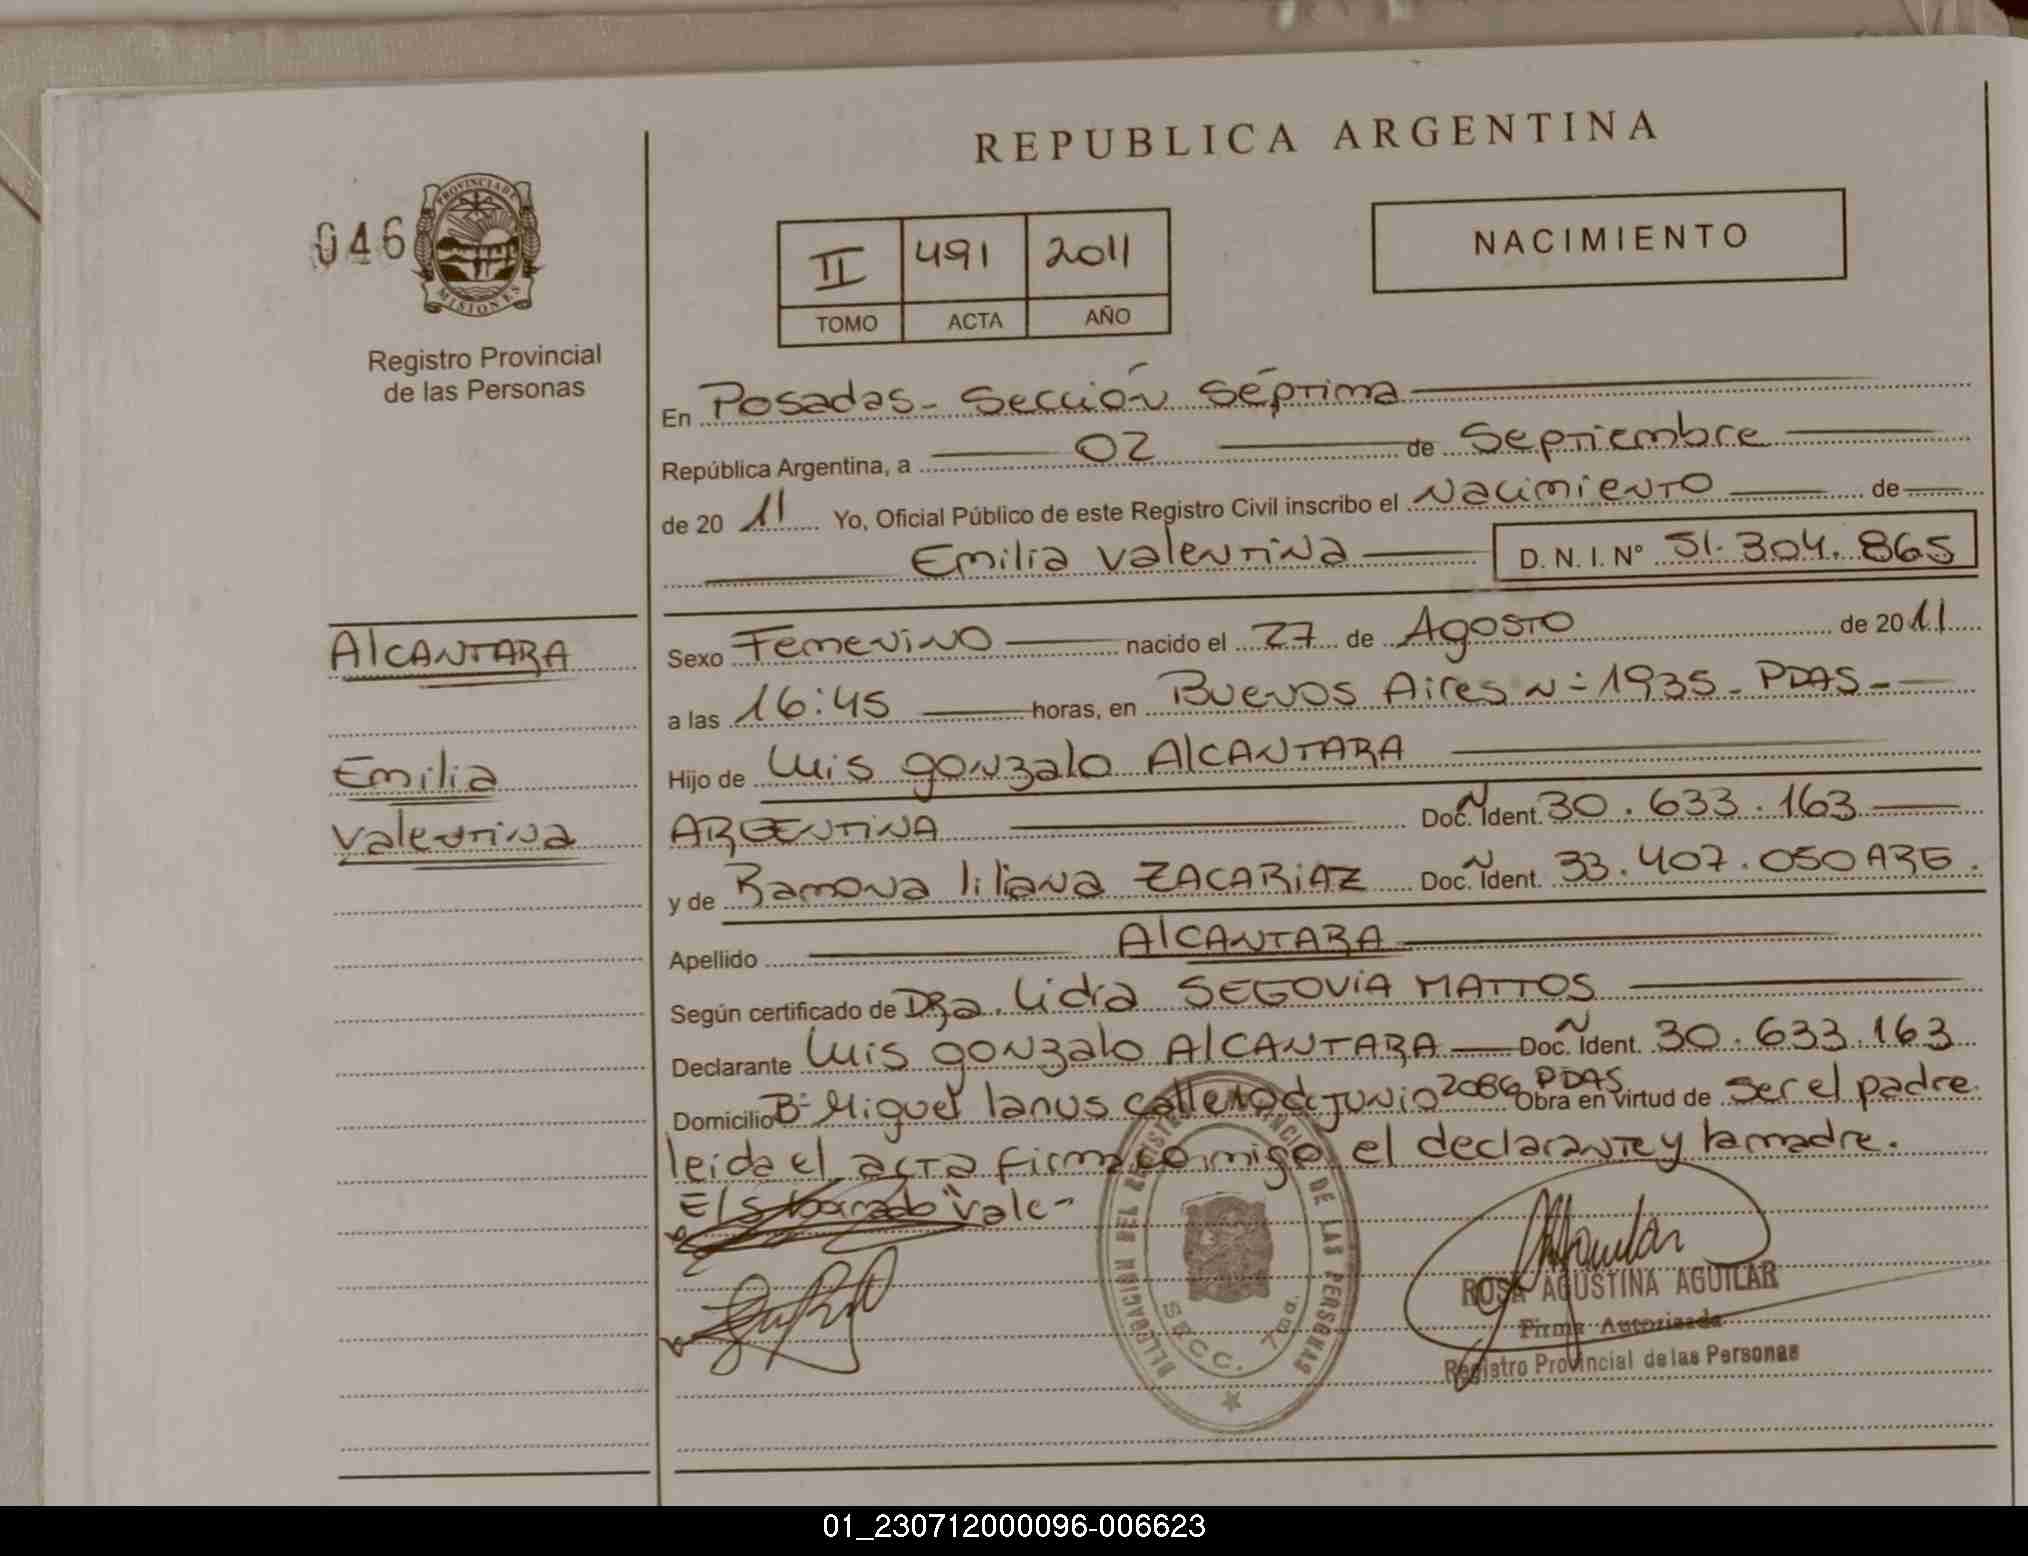 REPUBLICA ARGENTINA
046
PROVINCIA DE MISIONES
Registro Provincial
de las Personas
II 491 2011
TOMO ACTA AÑO
NACIMIENTO
En Posadas - Sección Séptima
República Argentina, a 02 de Septiembre
de 2011 Yo, Oficial Público de este Registro Civil inscribo el Nacimiento de
Emilia Valentina D. N. I. N° 51.304.865
ALCANTARA
Emilia
Valentina
Sexo Femenino nacido el 27 de Agosto de 2011
a las 16:45 horas, en Buenos Aires N= 1935 - PDAS -
Hijo de Luis gonzalo ALCANTARA
ARGENTINA Doc. Ident. 30.633.163
y de Ramona liliana ZACARIAZ Doc. Ident. 33.407.050 ARG.
Apellido ALCANTARA
Según certificado de DRa. Lidia SEGOVIA MATTOS
Declarante Luis gonzalo ALCANTARA Doc. Ident. 30.633.163
Domicilio B= Miguel lanus calle 10 de JUNIO 2086 PDAS Obra en virtud de ser el padre.
leida el acta firma conmigo, el declarante y la madre.
E/s borrado "vale-
DELEGACION DEL REGISTRO PROVINCIAL DE LAS PERSONAS
SECC. 7ma.
ROSA AGUSTINA AGUILAR
Firma Autorizada
Registro Provincial de las Personas
01_230712000096-006623